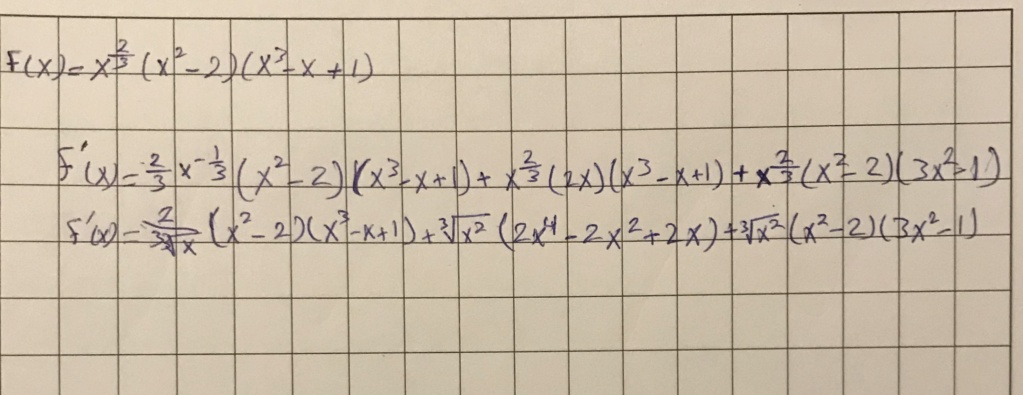 F(x) = x^{2/3} (x² - 2)(x³ - x + 1)
F'(x) = \frac{2}{3} x^{-1/3} (x² - 2)(x³ - x + 1) + x^{2/3} (2x)(x³ - x + 1) + x^{2/3} (x² - 2)(3x² - 1)
F'(x) = \frac{2}{3\sqrt[3]{x}} (x² - 2)(x³ - x + 1) + ∛x² (2x⁴ - 2x² + 2x) + ∛x² (x² - 2)(3x² - 1)